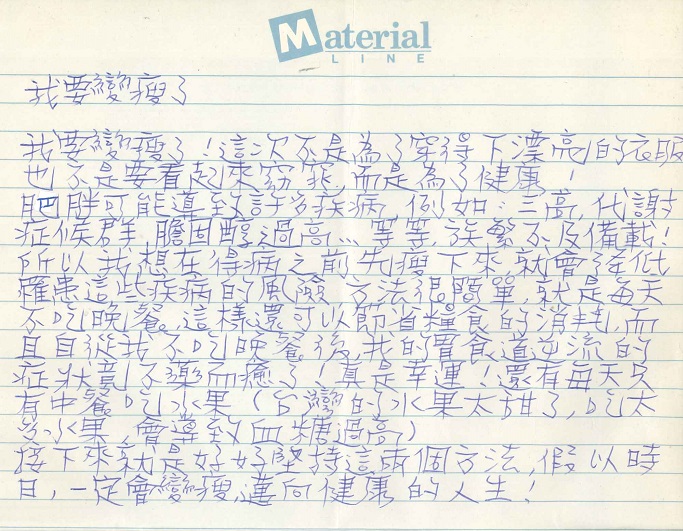 Material
LINE
我要變瘦了
我要變瘦了！這次不是為了穿得下漂亮的衣服
也不是要看起來窈窕，而是為了健康！
肥胖可能導致許多疾病，例如：三高，代謝
症候群，膽固醇過高…等等，族繁不及備載！
所以我想在得病之前先瘦下來，就會降低
罹患這些疾病的風險，方法很簡單，就是每天
不吃晚餐，這樣還可以節省糧食的消耗，而
且自從我不吃晚餐後，我的胃食道逆流的
症狀竟不藥而癒了！真是幸運！還有每天只
有中餐吃水果（台灣的水果太甜了，吃太
多水果，會導致血糖過高）
接下來就是好好堅持這兩個方法，假以時
日，一定會變瘦，邁向健康的人生！